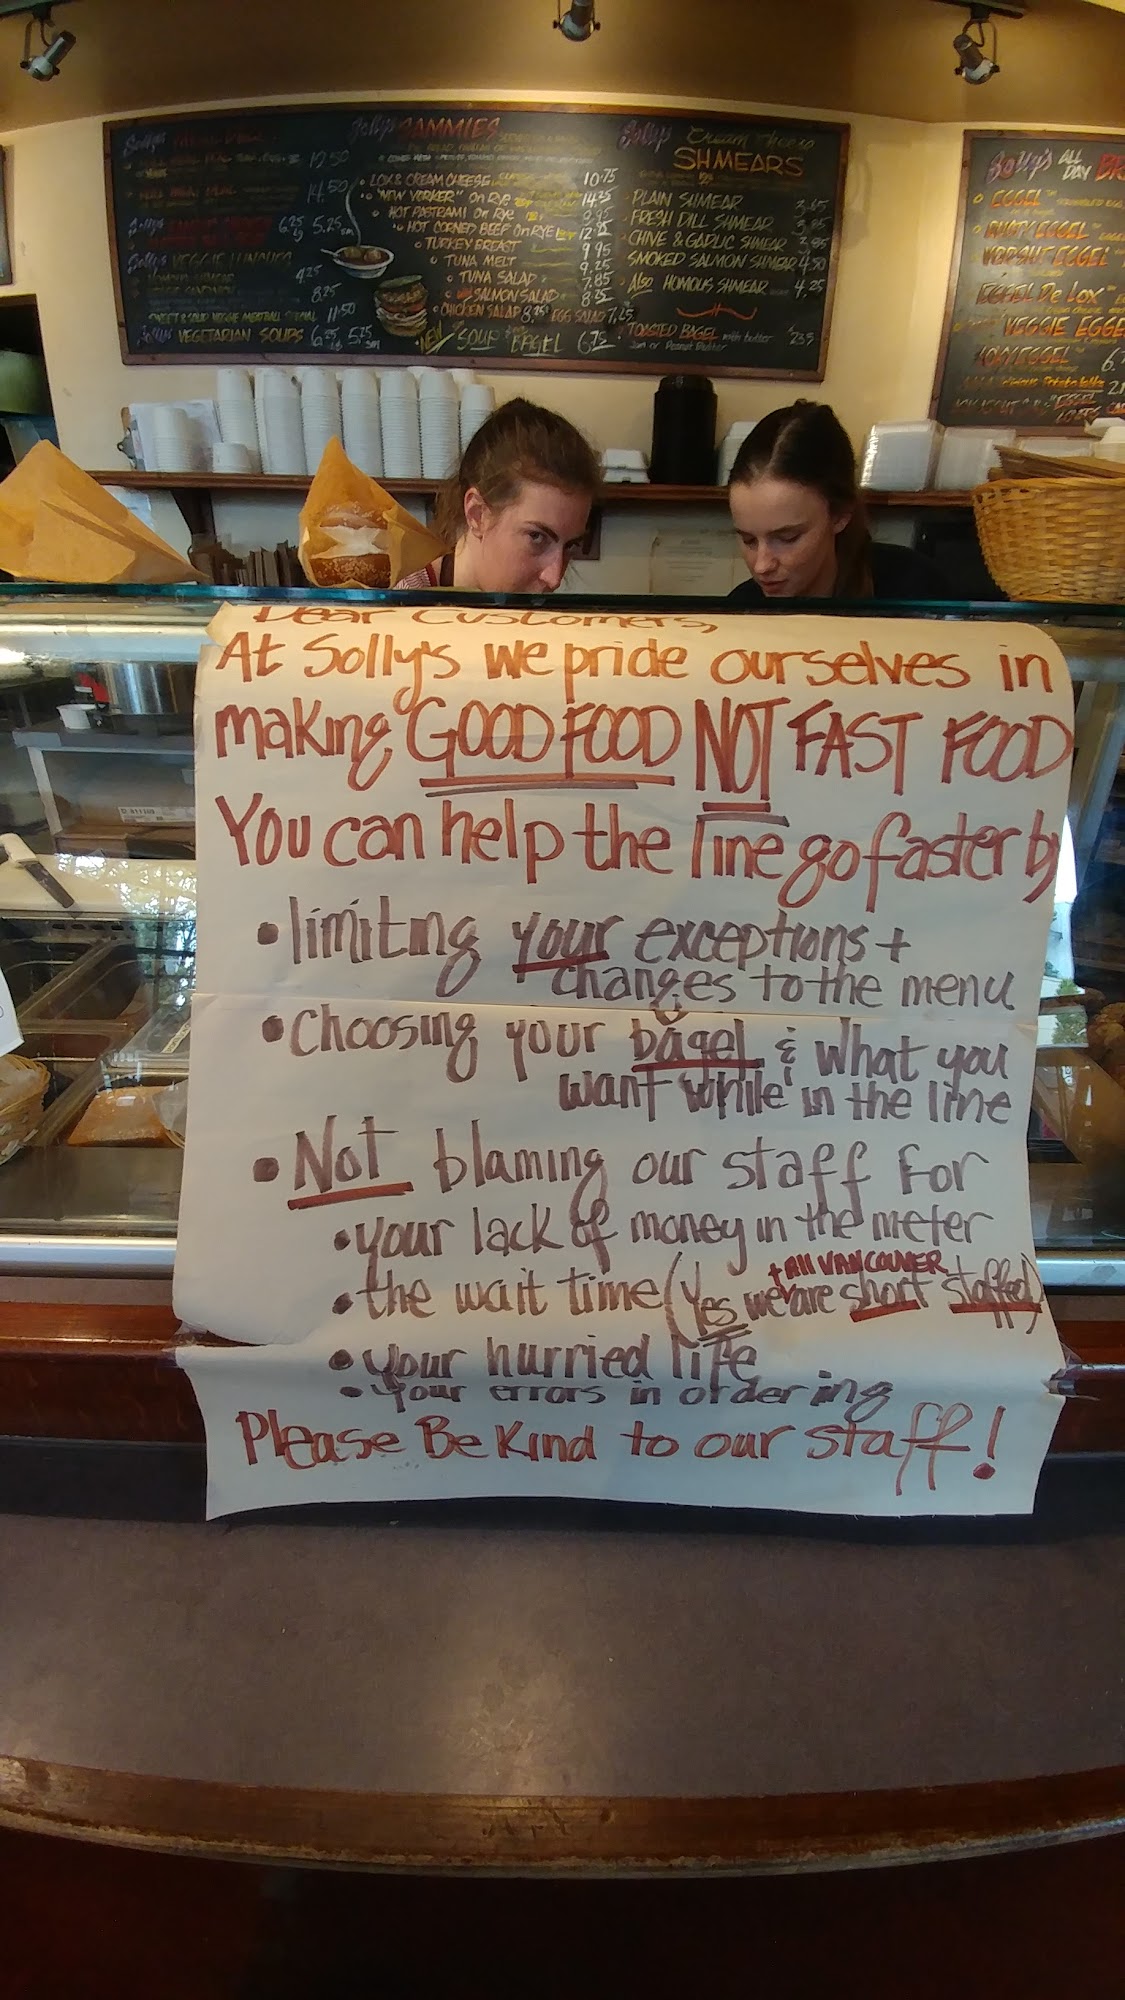 Solly's SAMMIES
LOX & CREAM CHEESE 10.75
"NEW YORKER" On Rye 14.25
HOT PASTRAMI On Rye
HOT CORNED BEEF On RYE
TURKEY BREAST 9.95
TUNA MELT 9.25
TUNA SALAD 7.85
SALMON SALAD 8.25
CHICKEN SALAD 8.25 EGG SALAD 7.25
NEW SOUP BAGEL 6.75
12.50
14.50
6.25 5.25
Solly's VEGGIE
4.25
8.25
SWEET & SOUR VEGGIE MEATBALL SPECIAL 11.50
Solly's VEGETARIAN SOUPS 6.25 5.25
Solly's Cream Cheese
SHMEARS
PLAIN SHMEAR 3.65
FRESH DILL SHMEAR
CHIVE & GARLIC SHMEAR
SMOKED SALMON SHMEAR 4.50
Also HOMOUS SHMEAR 4.25
TOASTED BAGEL with butter
Jam or Peanut Butter
Solly's ALL DAY
EGGEL
EGGEL
EGGEL
EGGEL De Lox
VEGGIE EGGEL
EGGEL
Dear Customers,
At Solly's we pride ourselves in
making GOOD FOOD NOT FAST FOOD
You can help the line go faster by
• limiting your exceptions +
changes to the menu
• Choosing your bagel & what you
want while in the line
• Not blaming our staff for
• your lack of money in the meter
• the wait time (Yes we + all VANCOUVER are short staffed)
• your hurried life
• your errors in ordering
Please Be Kind to our staff!